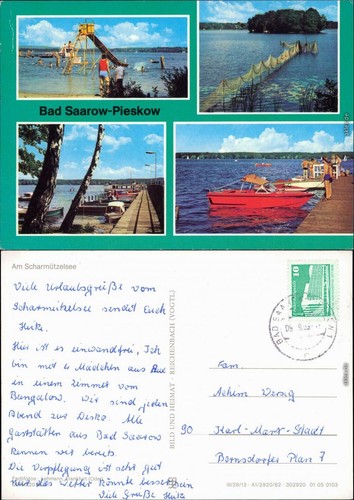 Bad Saarow-Pieskow
Am Scharmützelsee
Viele Urlaubsgrüße vom
Scharmützelsee sendet Euch
Heike.
Hier ist es einwandfrei, Ich
bin mit 4 Mädchen aus
in einem Zimmer vom
Bungalow. Wir sind jeden
Abend zur Disko. Alle
Gaststätten aus Bad Saarow
kennen wir bereits.
Die Verpflegung ist sehr gut
nur das Wetter könnte besser sein
Viele Grüße Heike
BILD UND HEIMAT · REICHENBACH (VOGTL)
10
BAD SAAROW
Fam.
Achim
90
Karl-Marx-Stadt
Bernsdorfer Plan 7